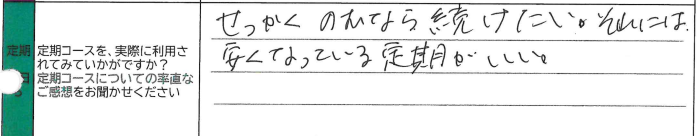 せっかく のむなら 続けたい。それには、
安くなっている定期がいい。
定期 定期コースを、実際に利用さ
れてみていかがですか？
定期コースについての率直な
ご感想をお聞かせください